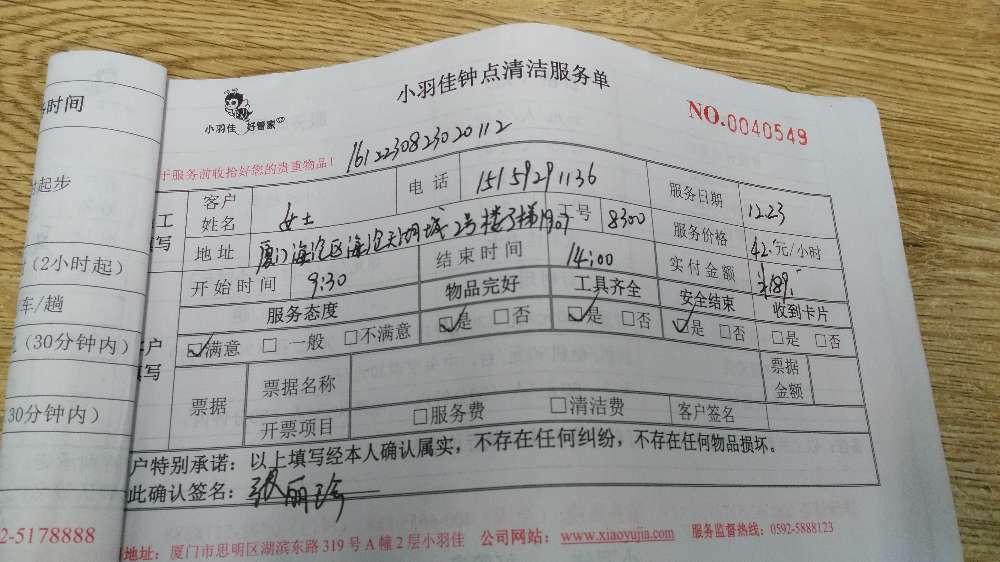 小羽佳钟点清洁服务单
小羽佳 好管家
NO.0040549
于服务前收拾好您的贵重物品！ 1612230823020112
客户姓名 女士 电话 15159291136 服务日期 12.23
地址 厦门海沧区海沧天湖城2号楼3梯1907 工号 8300 服务价格 42元/小时
开始时间 9:30 结束时间 14:00 实付金额 189
服务态度 物品完好 工具齐全 安全结束 收到卡片
☑满意 □一般 □不满意 ☑是 □否 ☑是 □否 ☑是 □否 □是 □否
票据 票据名称 票据金额
开票项目 □服务费 □清洁费 客户签名
户特别承诺：以上填写经本人确认属实，不存在任何纠纷，不存在任何物品损坏。
此确认签名：张丽珍
地址：厦门市思明区湖滨东路319号A幢2层小羽佳 公司网站：www.xiaoyujia.com 服务监督热线：0592-5888123
时间
起步
（2小时起）
车/趟
（30分钟内）
30分钟内）
2-5178888